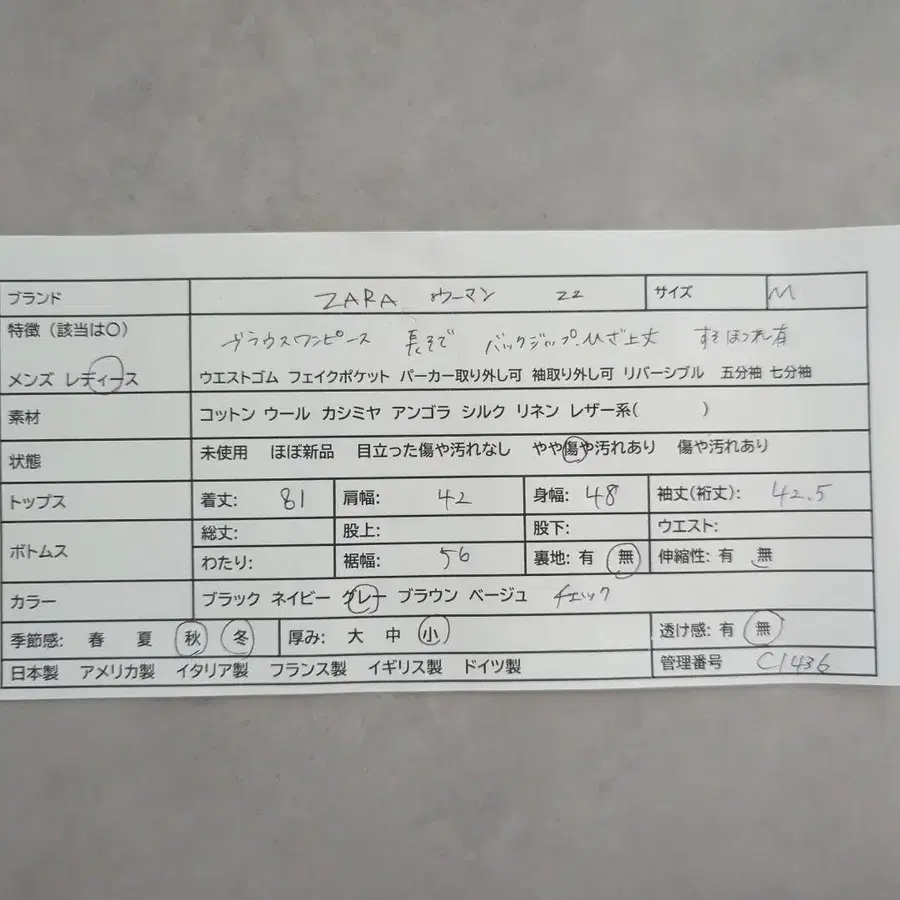 ブランド ZARA ウーマン 22 サイズ M
特徴（該当は〇） ブラウスワンピース 長そで バックジップ.ひざ上丈 すそほつれ有
メンズ レディース ウエストゴム フェイクポケット パーカー取り外し可 袖取り外し可 リバーシブル 五分袖 七分袖
素材 コットン ウール カシミヤ アンゴラ シルク リネン レザー系( )
状態 未使用 ほぼ新品 目立った傷や汚れなし やや傷や汚れあり 傷や汚れあり
トップス 着丈: 81 肩幅: 42 身幅: 48 袖丈(裄丈): 42.5
ボトムス 総丈: 股上: 股下: ウエスト:
わたり: 裾幅: 56 裏地: 有 無 伸縮性: 有 無
カラー ブラック ネイビー グレー ブラウン ベージュ チェック
季節感: 春 夏 秋 冬 厚み: 大 中 小 透け感: 有 無
日本製 アメリカ製 イタリア製 フランス製 イギリス製 ドイツ製 管理番号 C1436